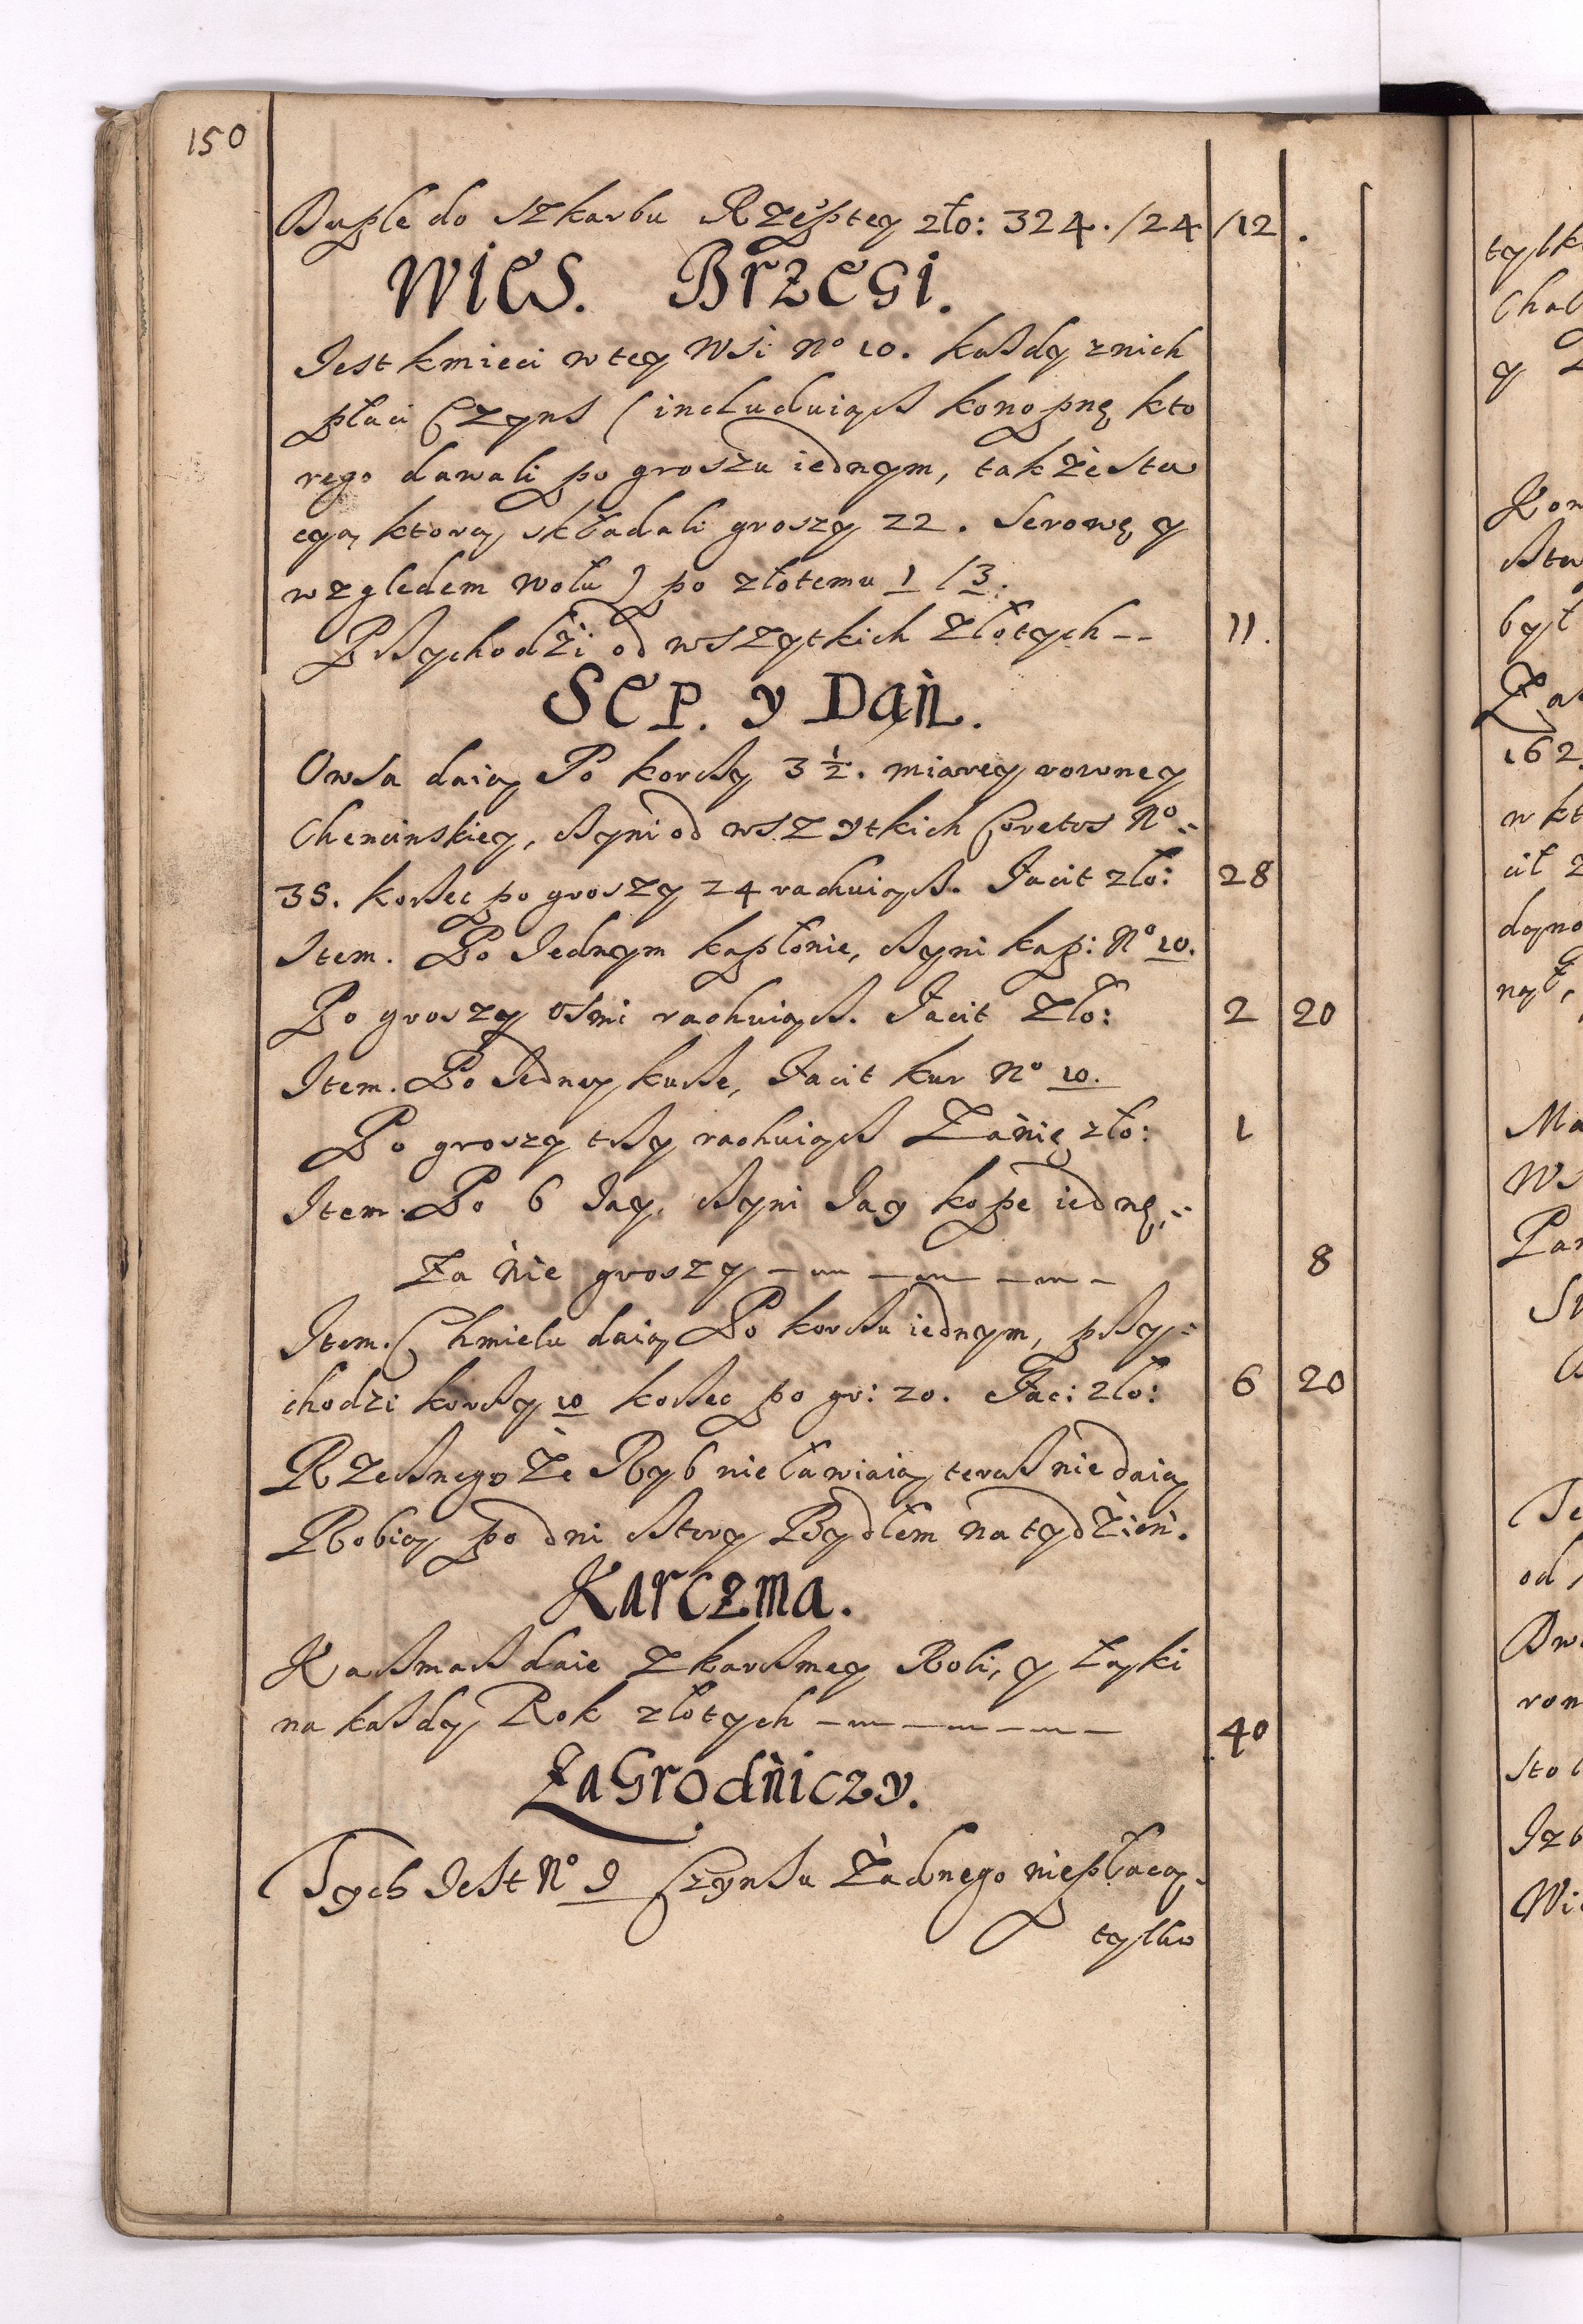 150
Duple do Szkarbu Rzeptey zło: 324. /24 /12.
WieS. BrZeGi.
Jest kmieci w tey Wsi No 10. każdy znich
płaci Czyns (includuiąc konopnę kto
rego dawali po groszu iednym, także sta
cyą, ktorą składali groszy 22. Serowę y
względem wołu) po złotemu 1 /3.
Przychodzi od wszytkich Złotych -- 11.
SeP. y Dań.
Owsa daią Po korcy 3 1/2. miarey rowney
Chencinskiey, czyni od wszytkich Coretos No.
35. korzec po groszy 24 rachuiąc. Facit zło: 28
Item. Po Jednym kapłonie, czyni kap: No 10.
Po groszy osmi rachuiąc. Facit Zło: 2 20
Item. Po Jedney kurze, Facit kur No 10.
Po groszy trzy rachuiąc Zanię zło: 1
Item. Po 6 Jay, czyni Jay kope iednę,
Za nie groszy 8
Item. Chmielu daią Po korcu iednym, przy
chodzi korcy 10 korzec po gr: 20. Faci: zło: 6 20
Rzecznego Że Ryb nie ławiaią, teraz nie daią
Robią po dni cztery Bydłem na tydzień.
Karczma.
Karczmarz daie Z karczmey Roli, y Łąki
na każdy Rok złotych 40
ZaGrodniczy.
Tych Jest No 9 Czynszu Żadnego niepłacą,
tylko